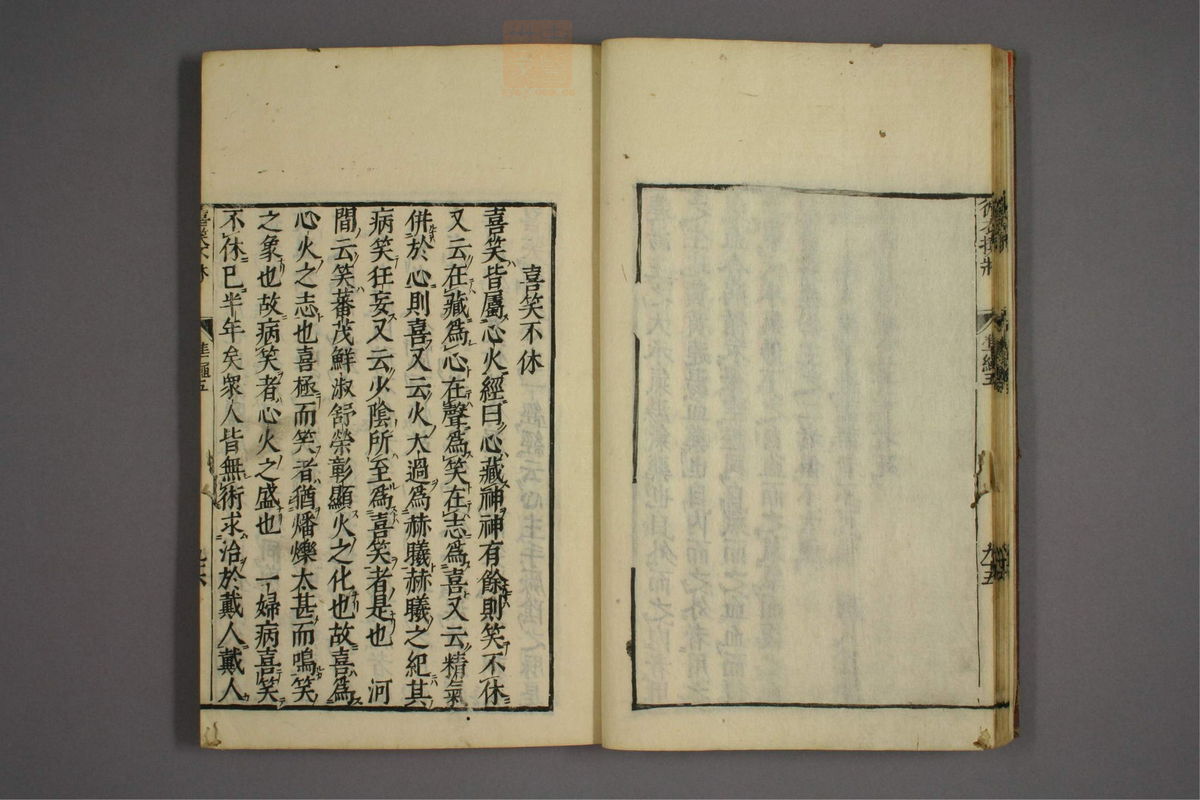 喜笑不休
喜笑皆屬心火經曰心藏神神有餘則笑不休
又云在藏爲心在聲爲笑在志爲喜又云精氣
併於心則喜又云火大過爲赫曦赫曦之紀其
病笑狂妄又云少陰所至爲喜笑者是也 河
間云笑蕃茂鮮淑舒榮彰顯火之化也故喜爲
心火之志也喜極而笑者猶燔爍太甚而鳴笑
之象也故病笑者心火之盛也 一婦病喜笑
不休已半年矣衆人皆無術求治於戴人戴人